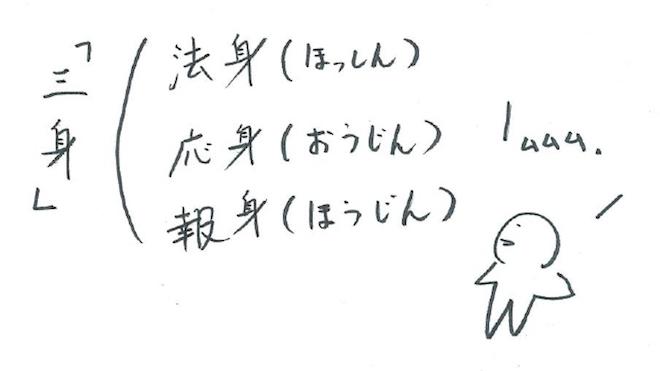 「三身」
法身(ほっしん)
応身(おうじん)
報身(ほうじん)